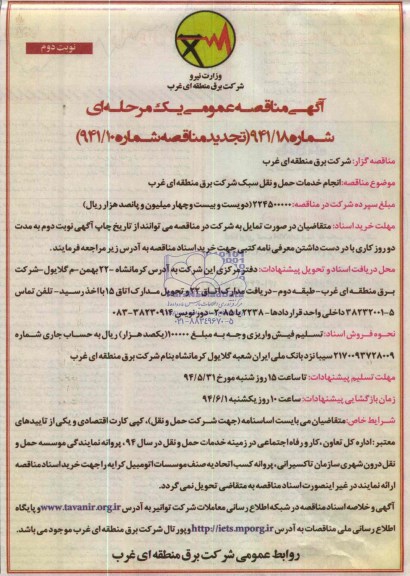 نوبت دوم
وزارت نیرو
شرکت برق منطقه ای غرب
آگهی مناقصه عمومی یک مرحله ای
شماره ۹۴۱/۱۸(تجدید مناقصه شماره ۹۴۱/۱۰)
مناقصه گزار: شرکت برق منطقه ای غرب
موضوع مناقصه: انجام خدمات حمل و نقل سبک شرکت برق منطقه ای غرب
مبلغ سپرده شرکت در مناقصه: ۲۲۴۵۰۰۰۰۰ (دویست و بیست و چهار میلیون و پانصد هزار ریال)
مهلت خرید اسناد: متقاضیان در صورت تمایل به شرکت در مناقصه می توانند از تاریخ چاپ آگهی نوبت دوم به مدت
دو روز کاری با در دست داشتن معرفی نامه کتبی جهت خرید اسناد مناقصه به آدرس زیر مراجعه فرمایند.
محل دریافت اسناد و تحویل پیشنهادات: دفتر مرکزی این شرکت به آدرس کرمانشاه -۲۲ بهمن -م گلایول -شرکت
برق منطقه ای غرب - طبقه دوم - دریافت مدارک اتاق ۲۲ و تحویل مدارک اتاق ۱۵ با اخذ رسید - تلفن تماس
۵-۳۸۲۳۲۰۰۱ داخلی واحد قراردادها - ۲۲۳۸ یا ۲۰۸۵- دورنویس ۳۸۲۳۰۹۱۴-۰۸۳
۰۲۱-۸۸۳۴۹۶۷۰-۵
نحوه فروش اسناد: تسلیم فیش واریزی وجه به مبلغ ۱۰۰۰۰۰(یکصد هزار) ریال به حساب جاری شماره
۲۱۷۰۰۹۳۷۲۸۰۰۹ سیبا نزد بانک ملی ایران شعبه گلایول کرمانشاه بنام شرکت برق منطقه ای غرب
مهلت تسلیم پیشنهادات: تا ساعت ۱۵ روز شنبه مورخ ۹۴/۵/۳۱
زمان بازگشایی پیشنهادات: ساعت ۱۰ روز یکشنبه ۹۴/۶/۱
شرایط خاص: متقاضیان می بایست اساسنامه (جهت شرکت حمل و نقل)، کپی کارت اقتصادی و یکی از تاییدهای
معتبر: اداره کل تعاون، کار و رفاه اجتماعی در زمینه خدمات حمل و نقل در سال ۹۴، پروانه نمایندگی موسسه حمل و
نقل درون شهری سازمان تاکسیرانی، پروانه کسب اتحادیه صنف موسسات اتومبیل کرایه را جهت خرید اسناد مناقصه
ارائه نمایند در غیر اینصورت اسناد مناقصه به متقاضی تحویل نمی گردد.
آگهی و خلاصه اسناد مناقصه در شبکه اطلاع رسانی معاملات شرکت توانیر به آدرس www.tavanir.org.ir و پایگاه
اطلاع رسانی ملی مناقصات به آدرس http://iets.mporg.ir و پورتال شرکت برق منطقه ای غرب موجود می باشد.
روابط عمومی شرکت برق منطقه ای غرب